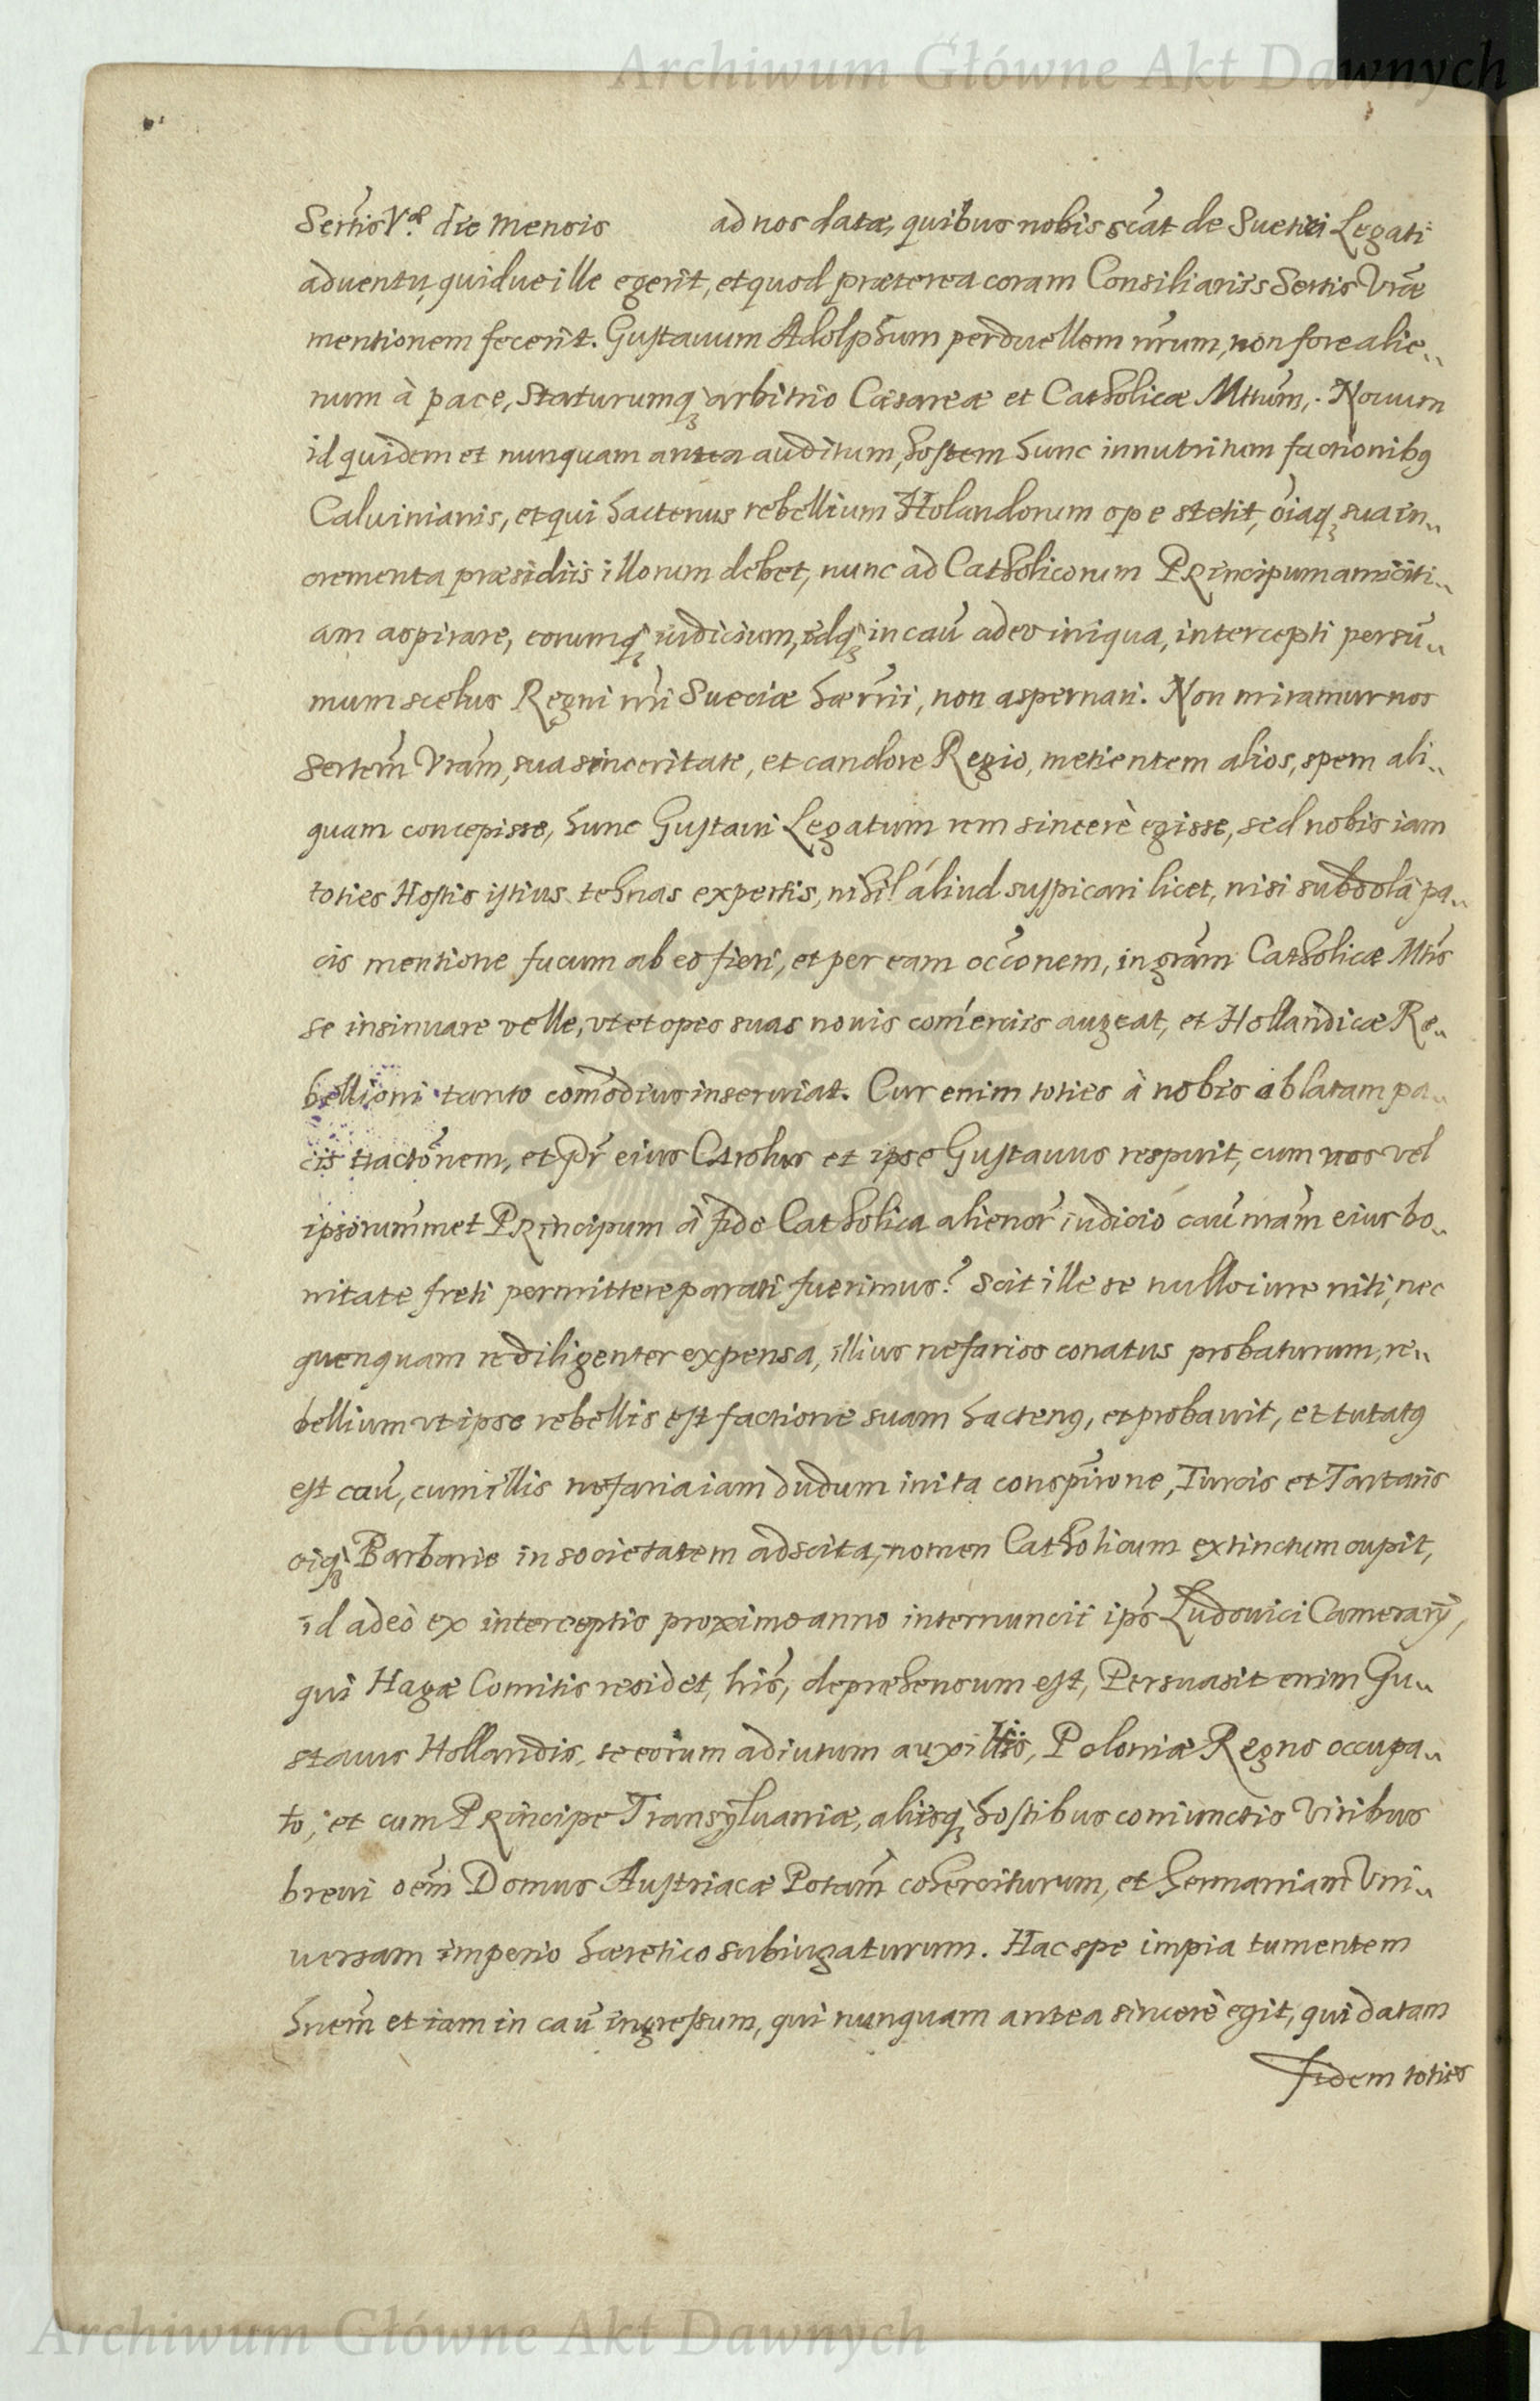 Archiwum Główne Akt Dawnych
Sertis Vræ die mensis ad nos datæ, quibus nobis scāt de Suetici Legati
aduentu, quidue ille egerit, et quod præterea coram Consiliariis Sertis Vræ
mentionem fecerit. Gustauum Adolphum perduellem nrum, non fore alie„
num à pace, staturumq; arbitrio Cæsareæ et Catholicæ Mttum. Nouum
id quidem et nunquam antea auditum, hostem hunc innutritum factionibus
Caluinianis, et qui hactenus rebellium Holandorum ope stetit, oiaq; sua in„
crementa præsidiis illorum debet, nunc ad Catholicorum Principum amiciti„
am aspirare, eorumq; iudicium, idq; in cau adeo iniqua, intercepti per su„
mum scelus Regni nri Sueciæ hærrii, non aspernari. Non miramur nos
Sertem Vram, sua sinceritate, et candore Regio, metientem alios, spem ali„
quam concepisse, hunc Gustaui Legatum rem sincerè egisse, sed nobis iam
toties Hostis istius tehnas expertis, nihil áliud suspicari licet, nisi subdola pa„
cis mentione fucum ab eo fieri, et per eam occonem, in gram Catholicæ Mtis
se insinuare velle, vt et opes suas nouis comerciis augeat, et Hollandicæ Re„
bellioni tanto comodius inseruiat. Cur enim toties à nobis oblatam pa„
cis tractonem, et pr eius Carolus et ipse Gustauus respuit, cum nos vel
ipsorummet Principum à fide Catholica alienor iudicio cau nram eius bo„
nitate freti permittere parati fuerimus? Scit ille se nullo iure niti, nec
quenquam re diligenter expensa, illius nefarios conatus probaturum, re„
bellium vt ipse rebellis est factione suam hactenus, et probauit, et tutatus
est cau, cum illis nefaria iam dudum inita conspirone, Turcis et Tartaris
oiq; Barbarie in societatem adscita, nomen Catholicum extinctum cupit,
id adeò ex interceptis proximo anno internuncii ips Ludouici Camerarÿ,
qui Hagæ Comitis residet, lris, deprehensum est, Persuasit enim Gu„
stauus Hollandis, se eorum adiutum auxiliis, Poloniæ Regno occupa„
to, et cum Principe Transÿluaniæ, aliisq; hostibus coniunctis viribus
breui oem Domus Austriacæ Potam coherciturum, et Hermaniam Vni„
uersam imperio hæretico subiugaturum. Hac spe impia tumentem
hnem et iam in cau ingressum, qui nunquam antea sincerè egit, qui datam
fidem toties
Archiwum Główne Akt Dawnych